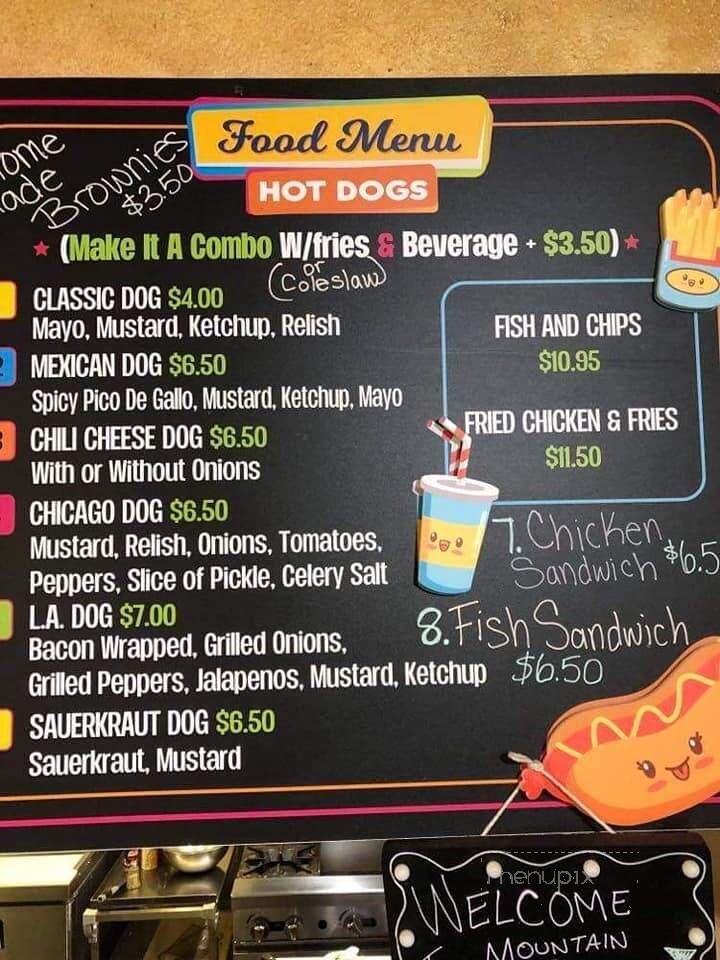 Food Menu
Brownies
$3.50
HOT DOGS
(Make It A Combo W/fries & Beverage + $3.50)
or
(Coleslaw)
CLASSIC DOG $4.00
Mayo, Mustard, Ketchup, Relish
MEXICAN DOG $6.50
Spicy Pico De Gallo, Mustard, Ketchup, Mayo
CHILI CHEESE DOG $6.50
With or Without Onions
CHICAGO DOG $6.50
Mustard, Relish, Onions, Tomatoes,
Peppers, Slice of Pickle, Celery Salt
L.A. DOG $7.00
Bacon Wrapped, Grilled Onions,
Grilled Peppers, Jalapenos, Mustard, Ketchup
SAUERKRAUT DOG $6.50
Sauerkraut, Mustard
FISH AND CHIPS
$10.95
FRIED CHICKEN & FRIES
$11.50
7. Chicken
Sandwich $6.5
8. Fish Sandwich
$6.50
menupix
WELCOME
MOUNTAIN